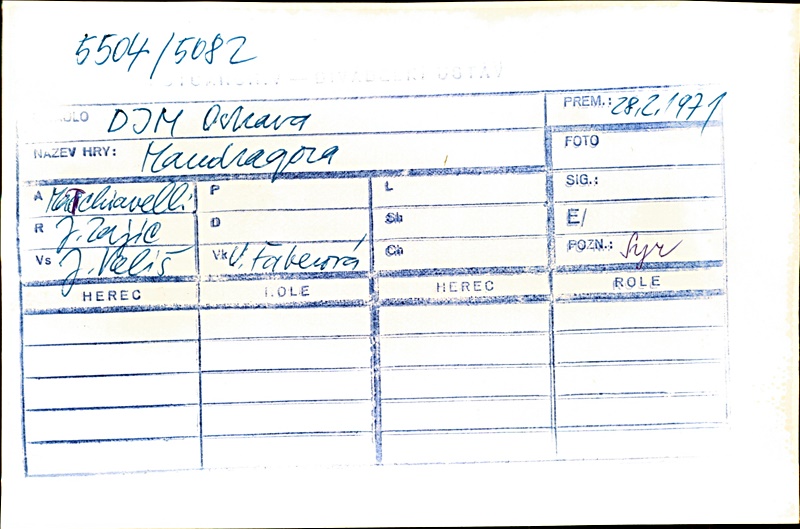 5504/5082
DJM Ostrava
PREM.: 28.2.1971
NÁZEV HRY: Mandragora
FOTO
A Macchiavelli L
P
SIG.:
R J. Zajíc D Sh E/
Vs J. Veliš Vk V. Faberová Ch POZN.: Syr
HEREC ROLE HEREC ROLE